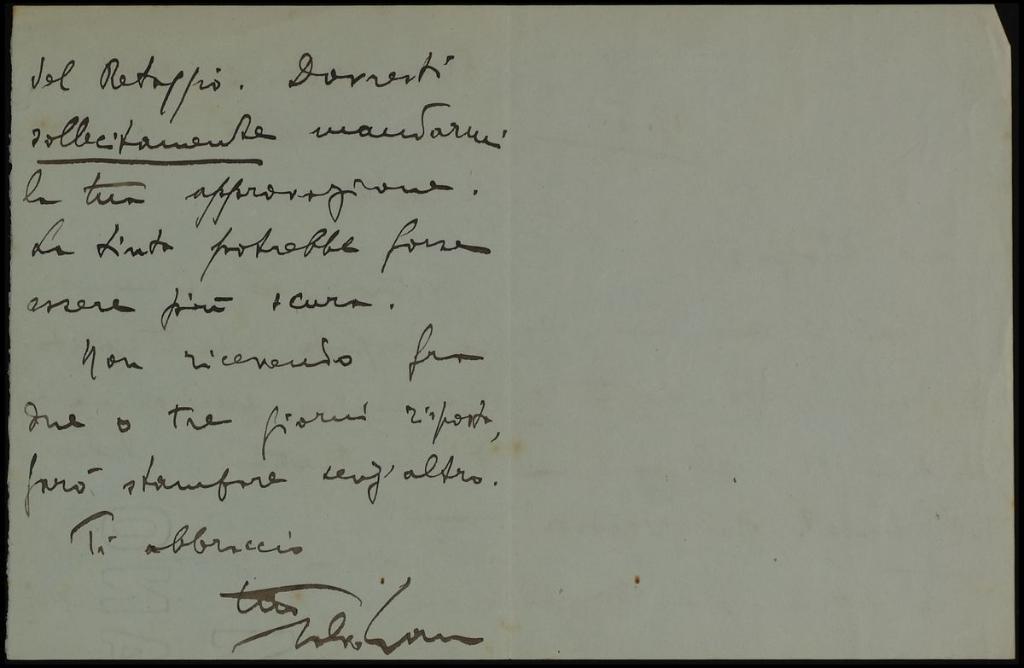 del Retaggio. Dovresti
sollecitamente mandarmi
la tua approvazione.
La tinta potrebbe forse
essere più scura.
Non ricevendo fra
due o tre giorni risposta,
farò stampare senz'altro.
Ti abbraccio
tuo